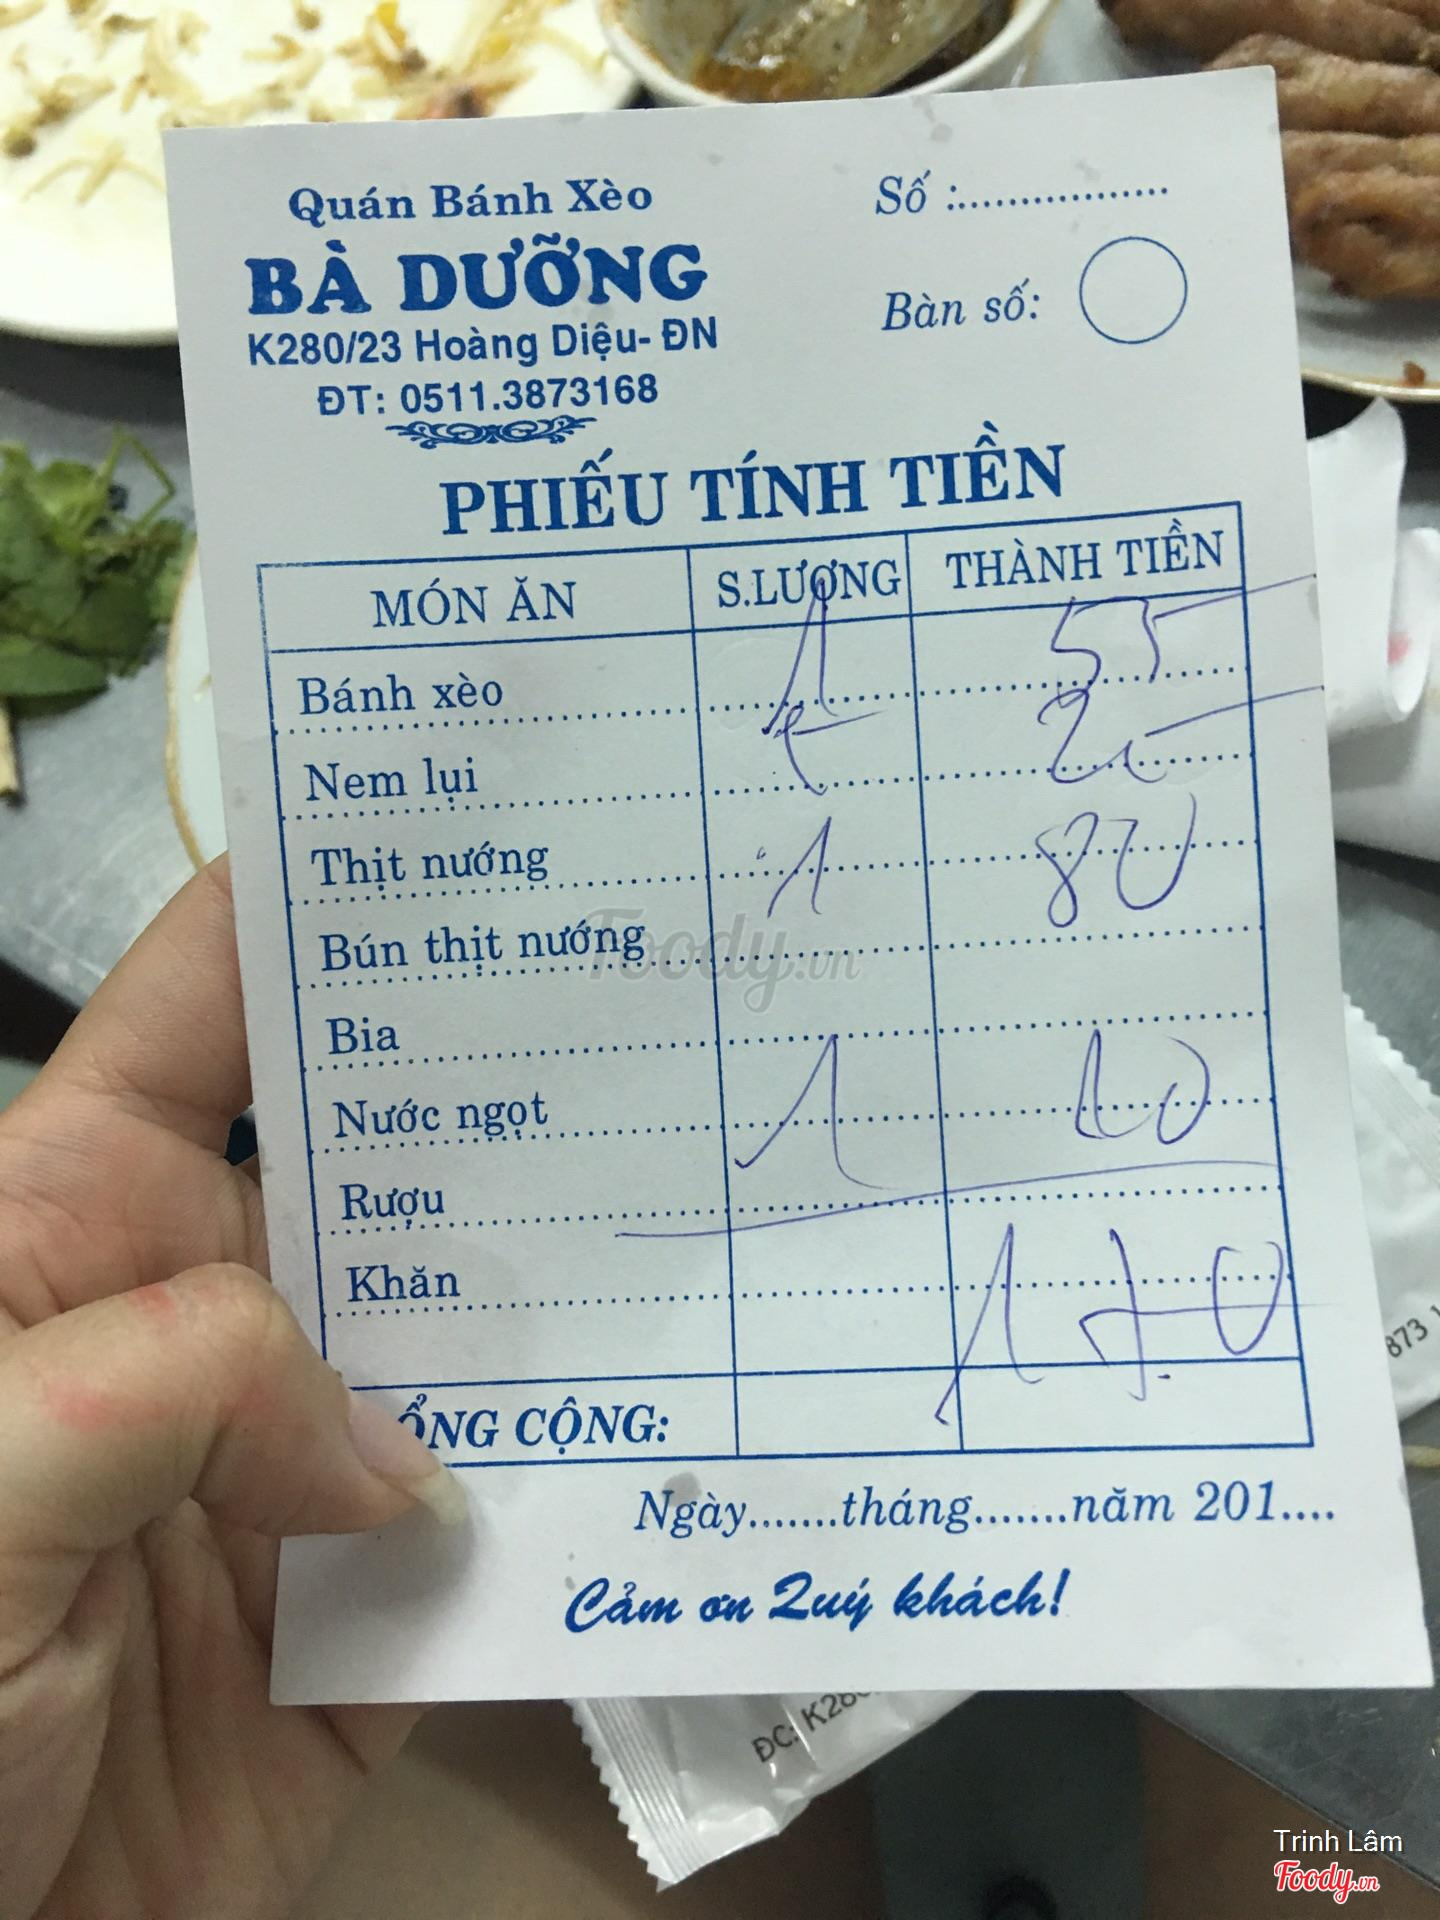 Quán Bánh Xèo
BÀ DƯỠNG
K280/23 Hoàng Diệu- ĐN
ĐT: 0511.3873168
Số :..................
Bàn số:
PHIẾU TÍNH TIỀN
MÓN ĂN S.LƯỢNG THÀNH TIỀN
Bánh xèo 1 55
Nem lụi
Thịt nướng 1 80
Bún thịt nướng
Bia
Nước ngọt 1 10
Rượu
Khăn 170
ỔNG CỘNG:
Ngày.......tháng.......năm 201....
Cảm ơn Quý khách!
Foody.vn
873 1
ĐC: K280
Trinh Lâm
Foody.vn